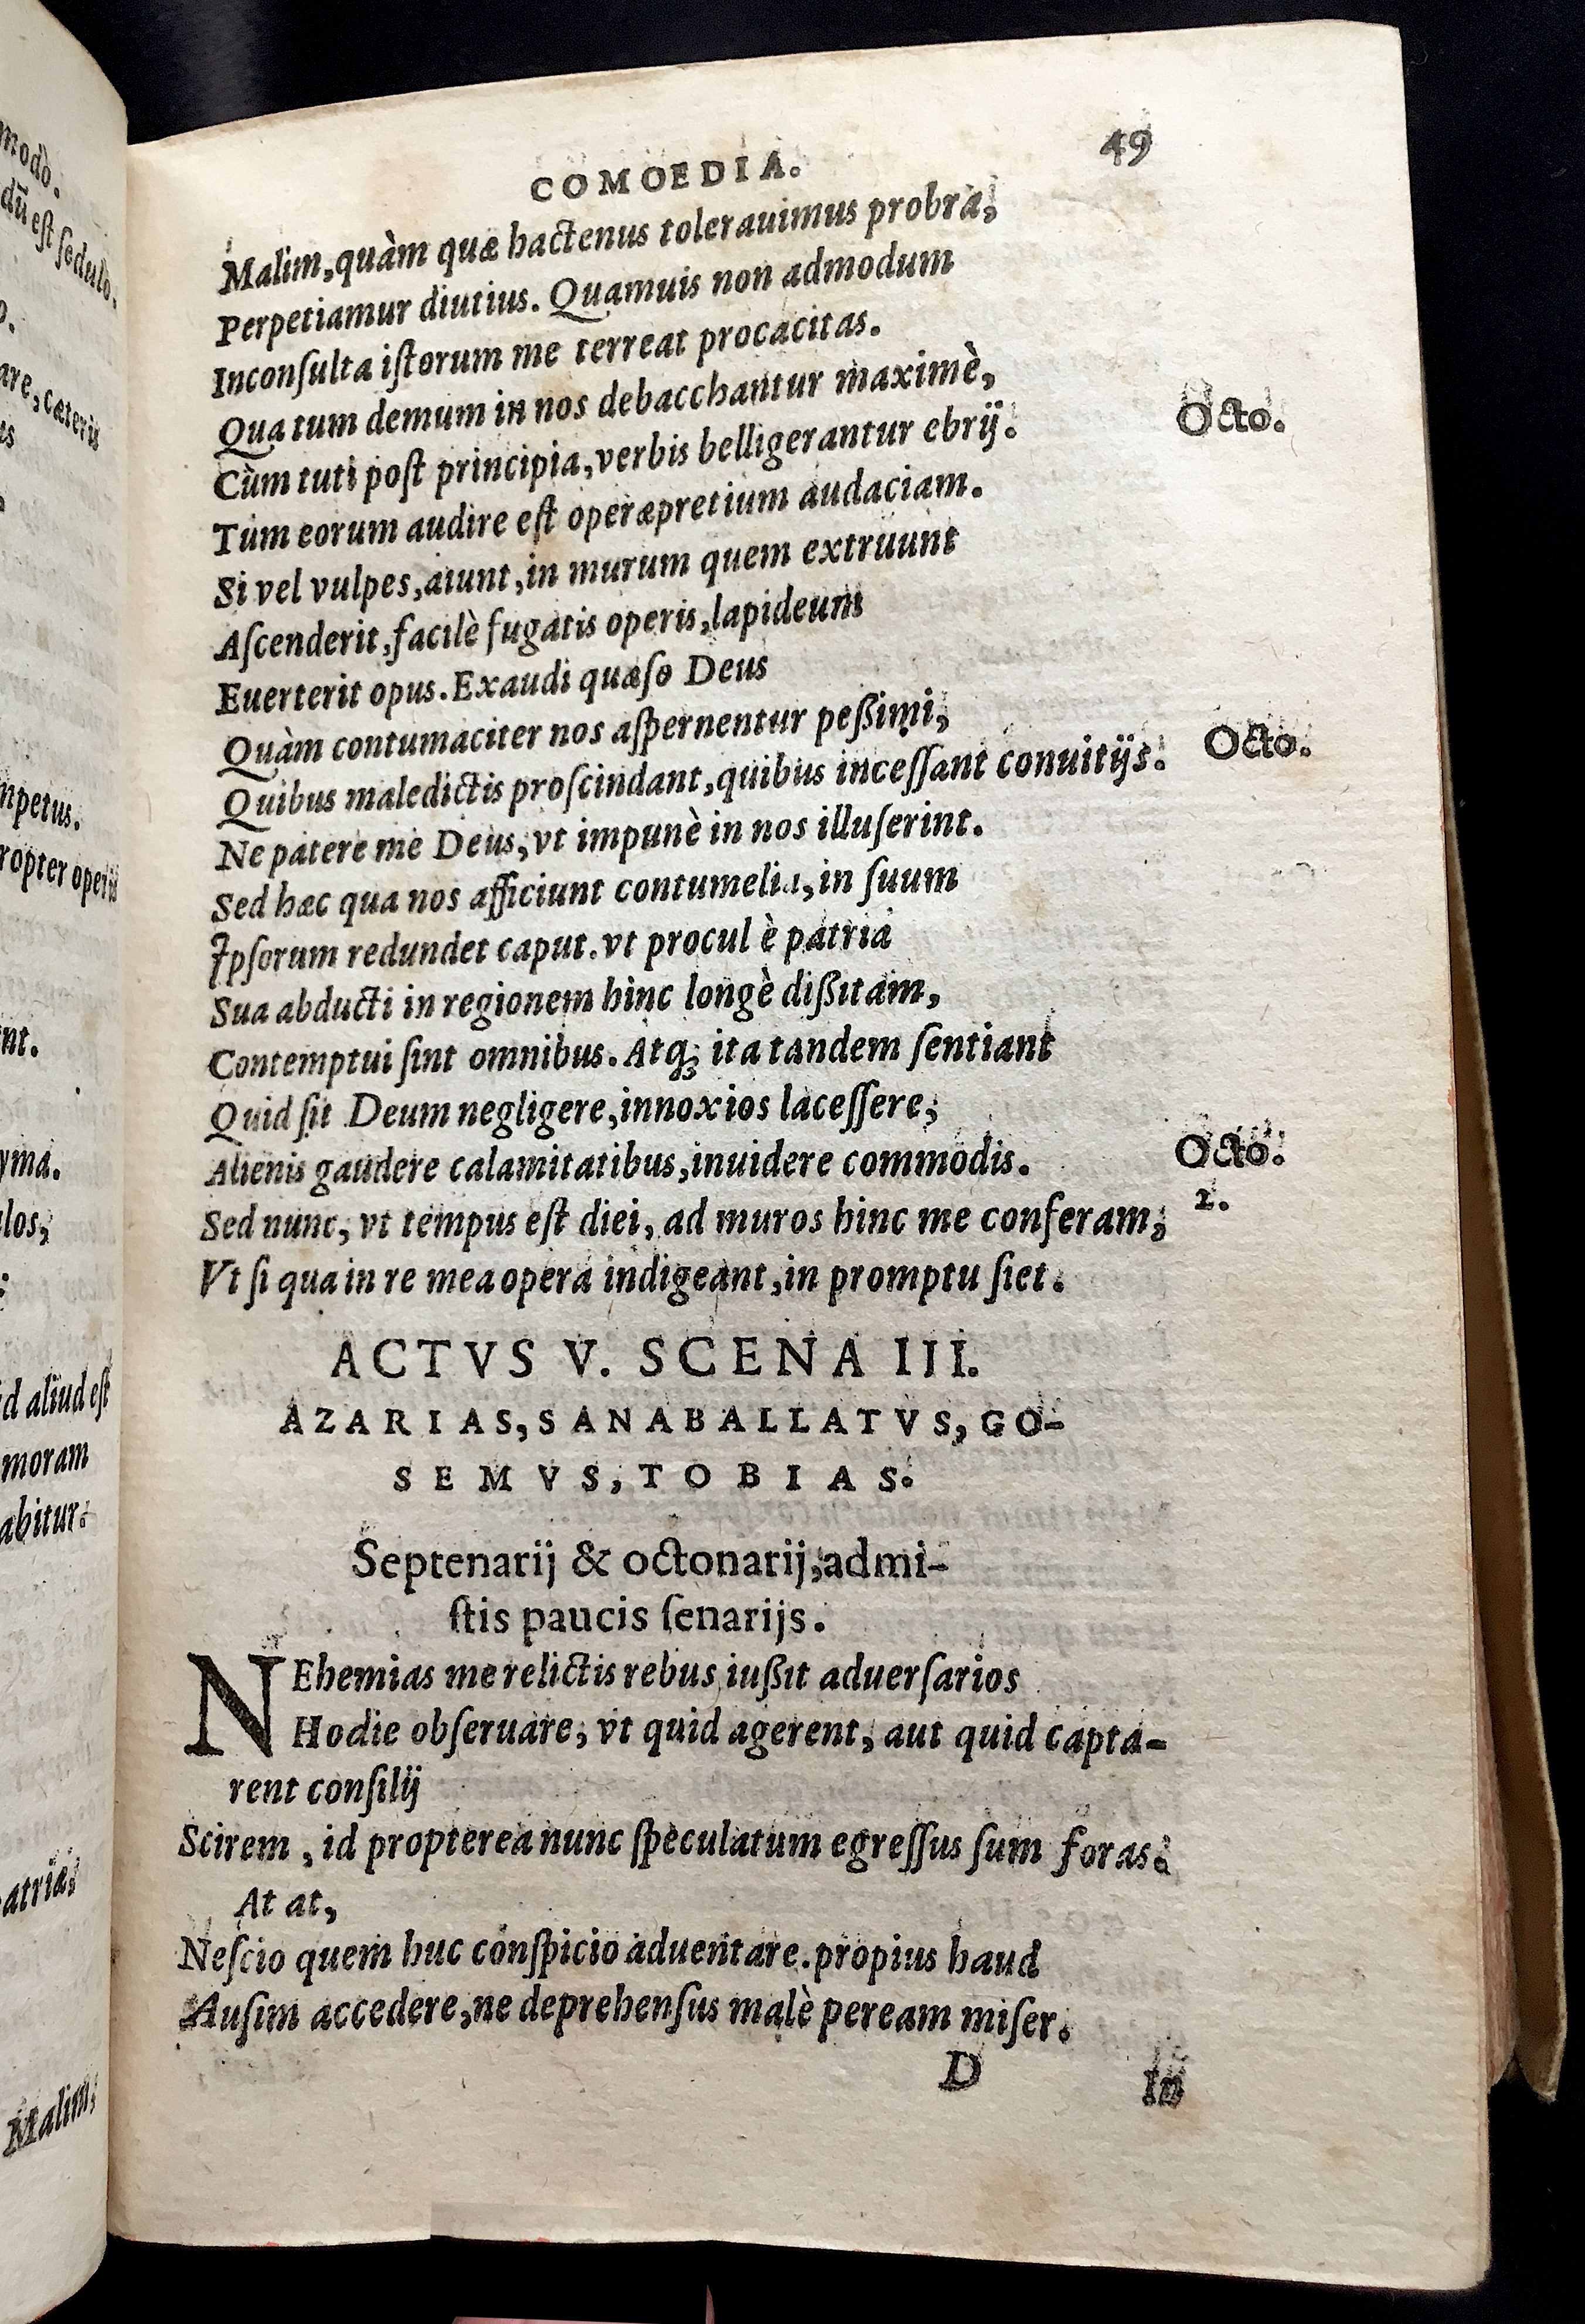 modò.
dũ est sedulò.
o.
are, cæteris
us
mpetus.
ropter operis
nt.
yma.
los,
:
id aliud est
moram
abitur.
atriæ,
Malim,
COMOEDIA. 49
Malim, quàm quæ hactenus tolerauimus probra,
Perpetiamur diutius. Quamuis non admodum
Inconsulta istorum me terreat procacitas.
Qua tum demum in nos debacchantur maximè, Octo.
Cùm tuti post principia, verbis belligerantur ebrij.
Tum eorum audire est operæpretium audaciam.
Si vel vulpes, aiunt, in murum quem extruunt
Ascenderit, facilè fugatis operis, lapideum
Euerterit opus. Exaudi quæso Deus
Quàm contumaciter nos aspernentur peßimi,
Quibus maledictis proscindant, quibus incessant conuitijs. Octo.
Ne patere me Deus, vt impunè in nos illuserint.
Sed hæc qua nos afficiunt contumelia, in suum
Ipsorum redundet caput. vt procul è patria
Sua abducti in regionem hinc longè dißitam,
Contemptui sint omnibus. Atq; ita tandem sentiant
Quid sit Deum negligere, innoxios lacessere,
Alienis gaudere calamitatibus, inuidere commodis. Octo.
Sed nunc, vt tempus est diei, ad muros hinc me conferam, 2.
Vt si qua in re mea opera indigeant, in promptu siet.
ACTVS V. SCENA III.
AZARIAS, SANABALLATVS, GO-
SEMVS, TOBIAS.
Septenarij & octonarij, admi-
stis paucis senarijs.
NEhemias me relictis rebus iußit aduersarios
Hodie obseruare, vt quid agerent, aut quid capta-
rent consilij
Scirem, id propterea nunc speculatum egressus sum foras.
At at,
Nescio quem huc conspicio aduentare. propius haud
Ausim accedere, ne deprehensus malè peream miser.
D In